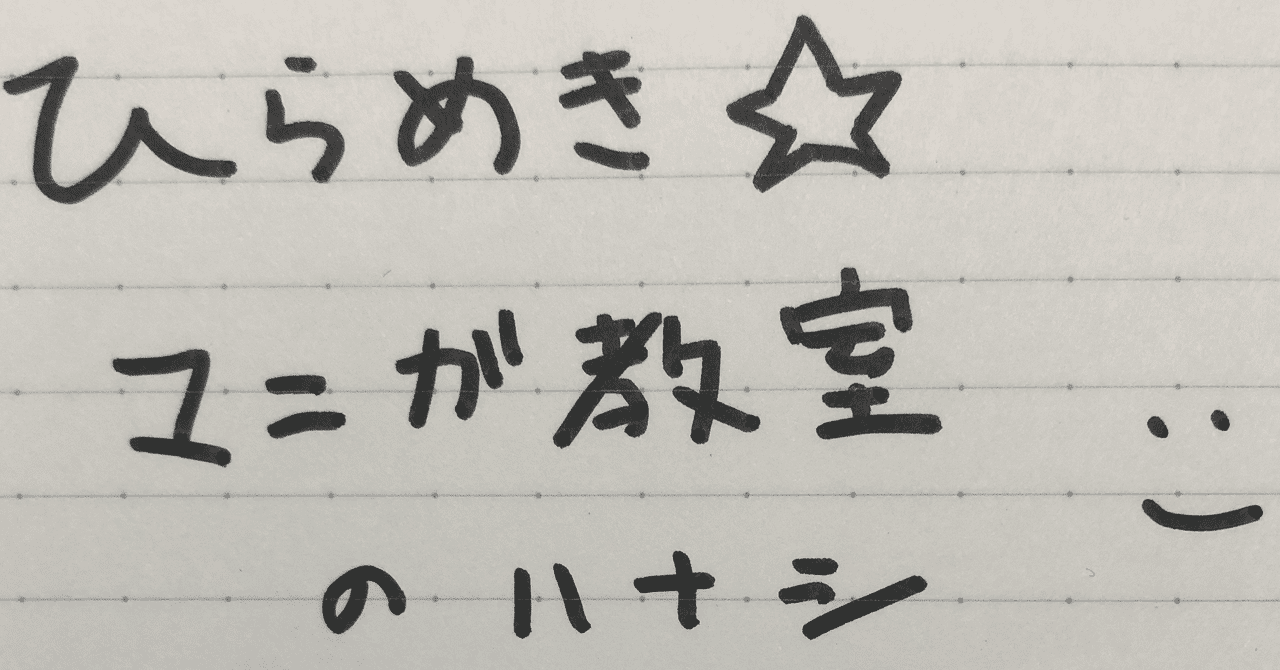 ひらめき☆
マニが教室
のハナシ